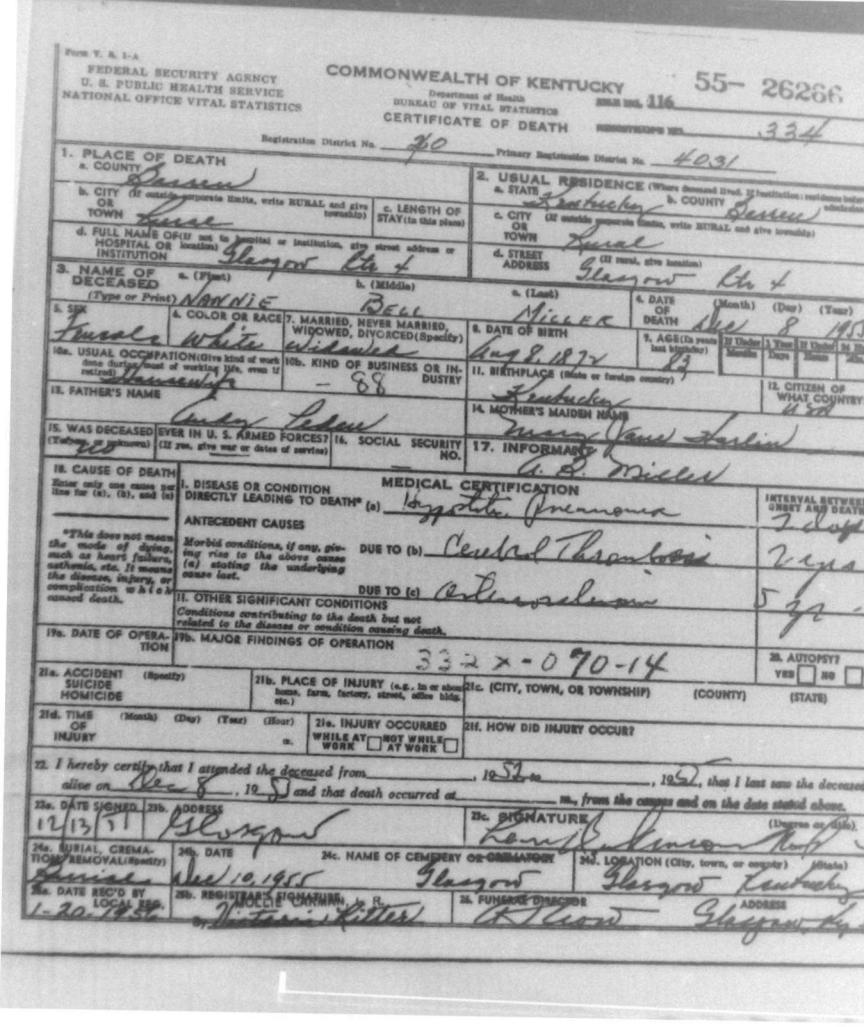 Form V. S. 1-A
FEDERAL SECURITY AGENCY
U. S. PUBLIC HEALTH SERVICE
NATIONAL OFFICE VITAL STATISTICS
COMMONWEALTH OF KENTUCKY
Department of Health
BUREAU OF VITAL STATISTICS
CERTIFICATE OF DEATH
55- 26266
FILE NO. 116
REGISTRAR'S NO. 334
Registration District No. 20
Primary Registration District No. 4031
1. PLACE OF DEATH
a. COUNTY Barren
b. CITY (If outside corporate limits, write RURAL and give township)
OR TOWN Rural
c. LENGTH OF STAY (in this place)
d. FULL NAME OF (If not in hospital or institution, give street address or location)
HOSPITAL OR INSTITUTION Glasgow Rte 4
2. USUAL RESIDENCE (Where deceased lived. If institution: residence before admission)
a. STATE Kentucky b. COUNTY Barren
c. CITY (If outside corporate limits, write RURAL and give township)
OR TOWN Rural
d. STREET ADDRESS (If rural, give location)
Glasgow Rte 4
3. NAME OF DECEASED (Type or Print)
a. (First) NANNIE
b. (Middle) BELL
c. (Last) MILLER
4. DATE OF DEATH (Month) (Day) (Year)
Dec 8 195
5. SEX Female
6. COLOR OR RACE White
7. MARRIED, NEVER MARRIED, WIDOWED, DIVORCED (Specify) Widowed
8. DATE OF BIRTH Aug 8. 1872
9. AGE (In years last birthday) 83
If Under 1 Year Months Days
If Under 24 H Hours
10a. USUAL OCCUPATION (Give kind of work done during most of working life, even if retired) Housewife
10b. KIND OF BUSINESS OR INDUSTRY - 88
11. BIRTHPLACE (State or foreign country) Kentucky
12. CITIZEN OF WHAT COUNTRY USA
13. FATHER'S NAME
Peden
14. MOTHER'S MAIDEN NAME
Mary Jane Harlin
15. WAS DECEASED EVER IN U. S. ARMED FORCES?
(Yes, no, or unknown) (If yes, give war or dates of service)
no
16. SOCIAL SECURITY NO.
17. INFORMANT
A. B. Miller
18. CAUSE OF DEATH
Enter only one cause per line for (a), (b), and (c)
*This does not mean the mode of dying, such as heart failure, asthenia, etc. It means the disease, injury, or complication which caused death.
MEDICAL CERTIFICATION
I. DISEASE OR CONDITION DIRECTLY LEADING TO DEATH* (a) Hypostatic Pneumonia
INTERVAL BETWEEN ONSET AND DEATH
2 days
ANTECEDENT CAUSES
Morbid conditions, if any, giving rise to the above cause (a) stating the underlying cause last.
DUE TO (b) Cerebral Thrombosis 2 yrs
DUE TO (c) Arteriosclerosis 5 yr
II. OTHER SIGNIFICANT CONDITIONS
Conditions contributing to the death but not related to the disease or condition causing death.
19a. DATE OF OPERATION
19b. MAJOR FINDINGS OF OPERATION
332X-070-14
20. AUTOPSY?
YES NO
21a. ACCIDENT SUICIDE HOMICIDE (Specify)
21b. PLACE OF INJURY (e.g., in or about home, farm, factory, street, office bldg. etc.)
21c. (CITY, TOWN, OR TOWNSHIP) (COUNTY) (STATE)
21d. TIME OF INJURY (Month) (Day) (Year) (Hour) m.
21e. INJURY OCCURRED
WHILE AT WORK NOT WHILE AT WORK
21f. HOW DID INJURY OCCUR?
22. I hereby certify that I attended the deceased from , 1952 to , 195 , that I last saw the deceased
alive on Dec 8 , 195 and that death occurred at m., from the causes and on the date stated above.
23a. DATE SIGNED 12/13/
23b. ADDRESS Glasgow
23c. SIGNATURE (Degree or title)
24a. BURIAL, CREMATION, REMOVAL (Specify) Burial
24b. DATE Dec 10, 1955
24c. NAME OF CEMETERY OR CREMATORY Glasgow
24d. LOCATION (City, town, or county) (State) Glasgow Kentucky
25a. DATE REC'D BY LOCAL REG. 1-20-1956
25b. REGISTRAR'S SIGNATURE
MOLLIE CARMAN, L. R.
By Victoria Ritter
26. FUNERAL DIRECTOR
ADDRESS
Glasgow, Ky